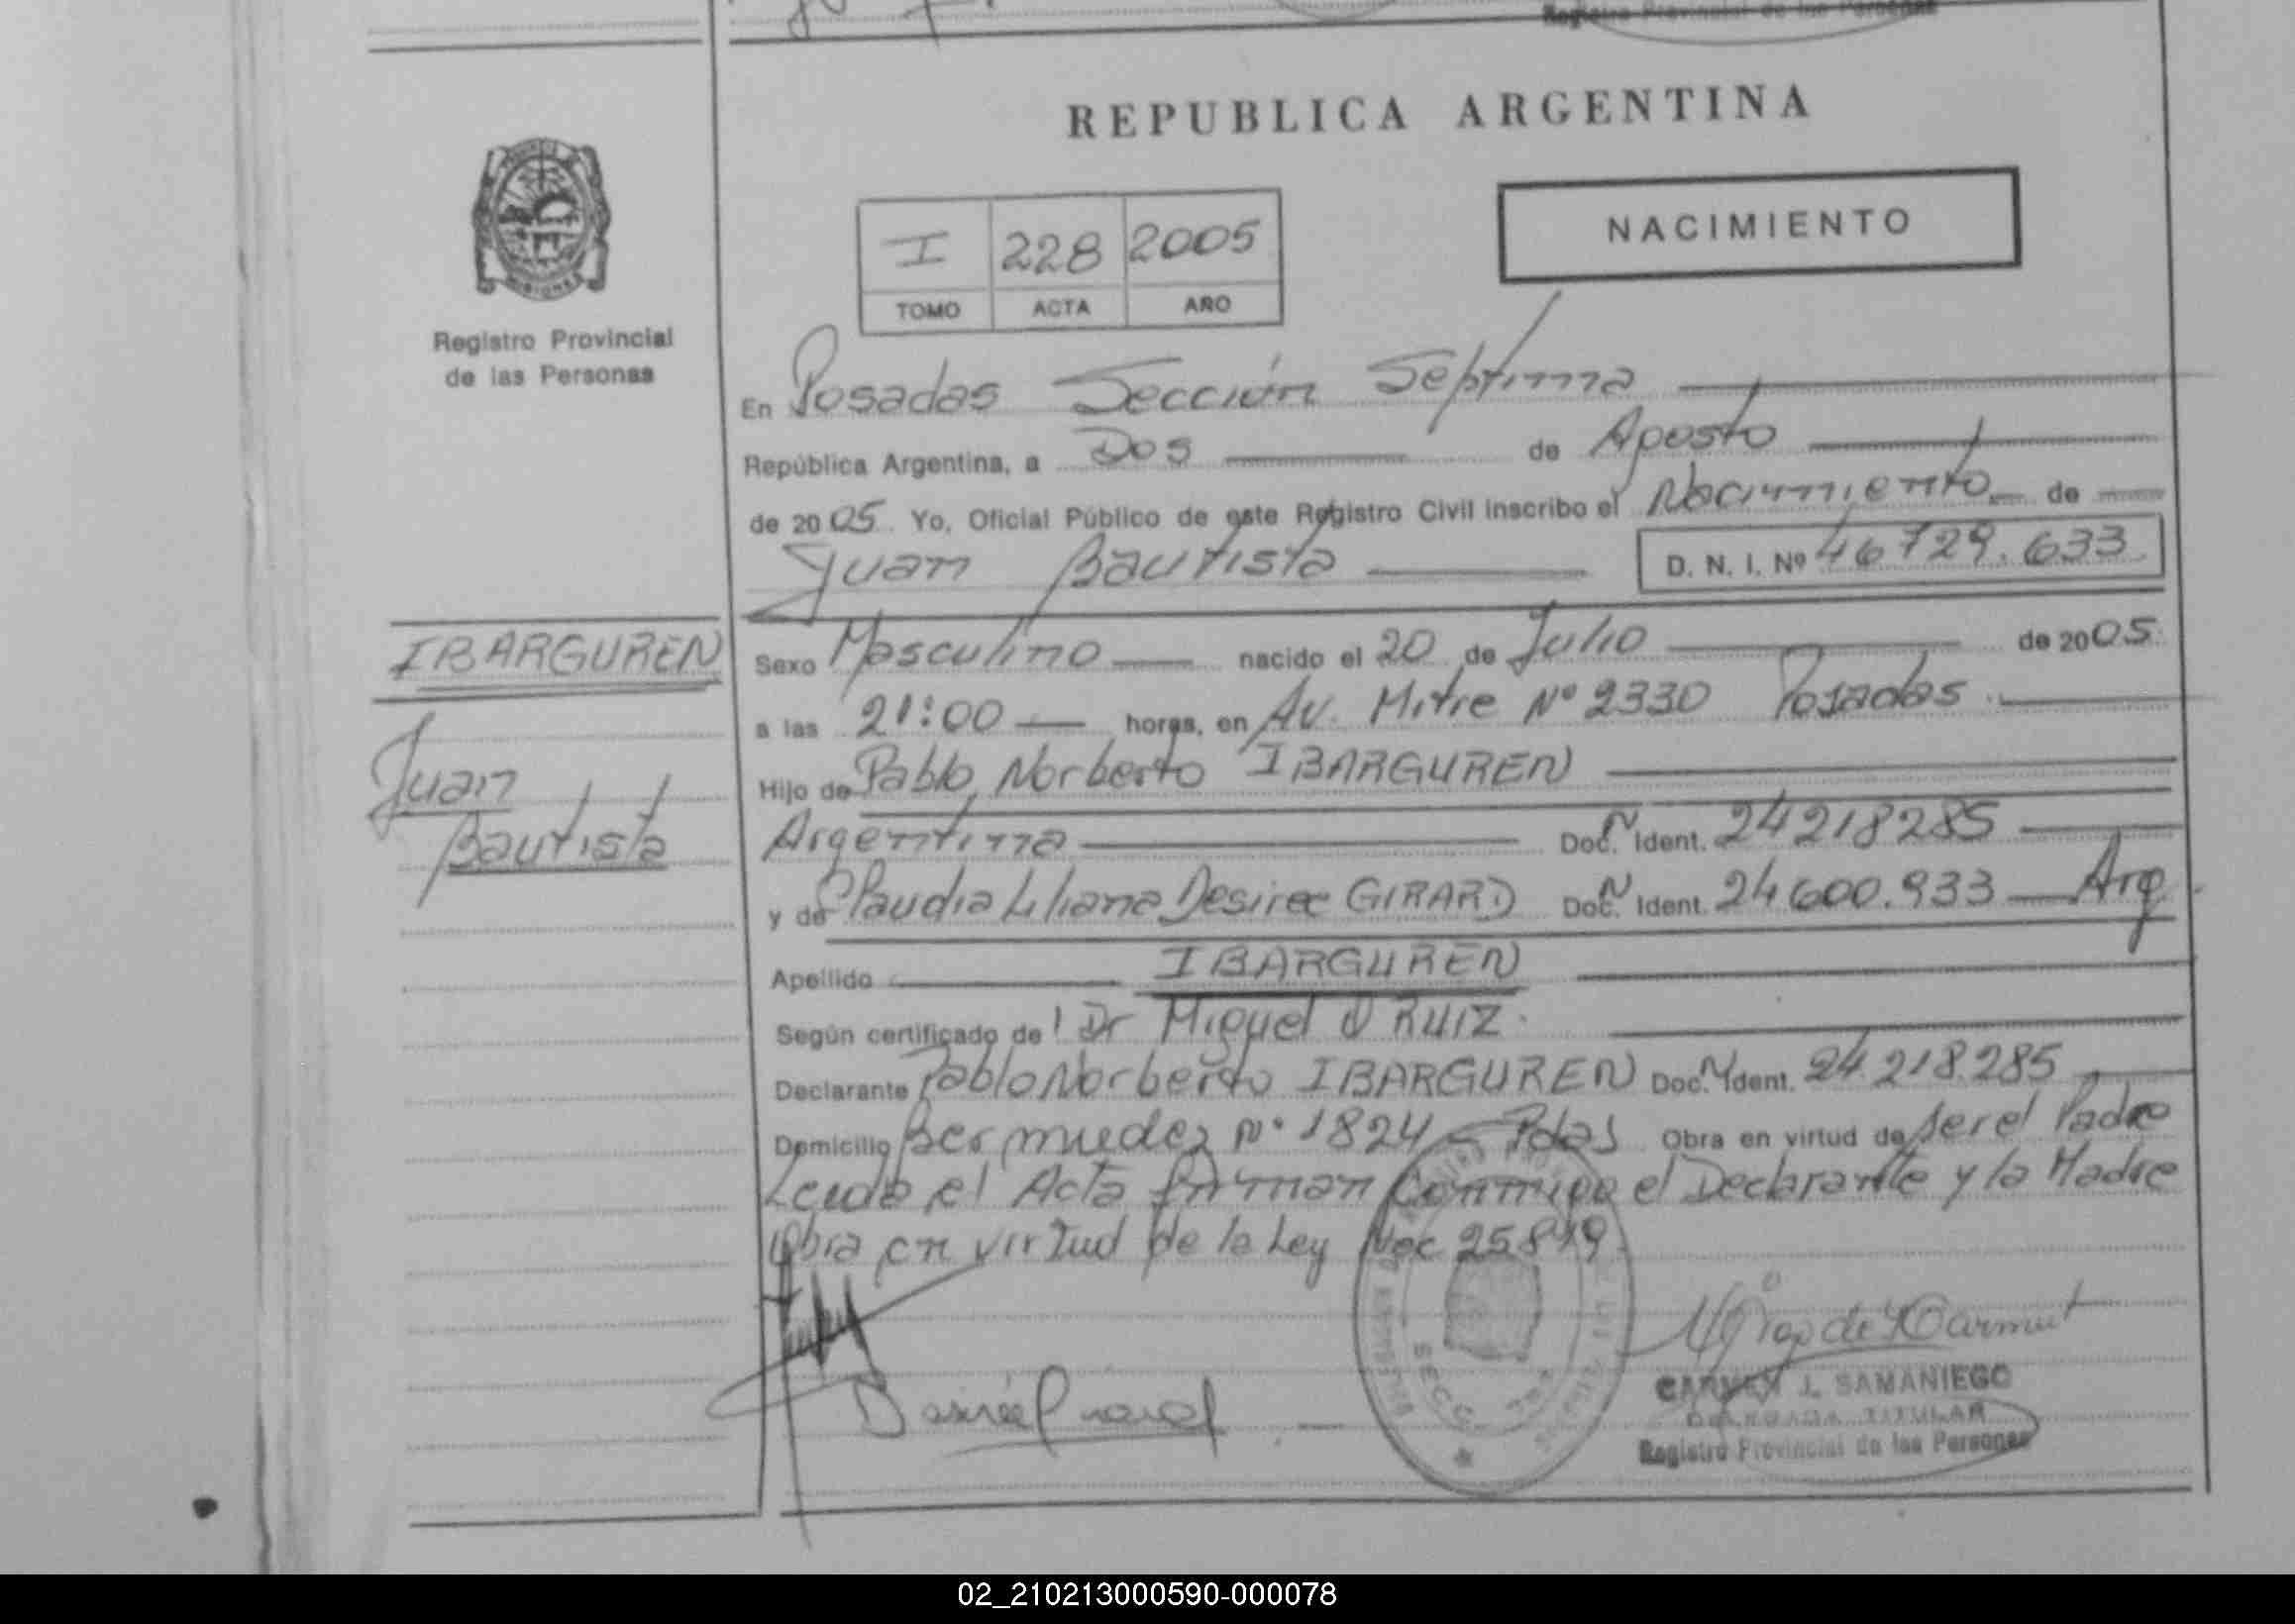 Registro Provincial de las Personas
REPUBLICA ARGENTINA
NACIMIENTO
I 228 2005
TOMO ACTA AÑO
MISIONES
Registro Provincial
de las Personas
En Posadas Sección Septima
República Argentina, a Dos de Agosto
de 2005. Yo, Oficial Público de este Registro Civil inscribo el Nacimiento de
Juan Bautista D. N. I. Nº 46729.633
IBARGUREN
Juan
Bautista
Sexo Masculino nacido el 20 de Julio de 2005.
a las 21:00 horas, en Av. Mitre Nº 2330 Posadas
Hijo de Pablo Norberto IBARGUREN
Argentina Doc. N Ident. 24218285
y de Claudia Liliana Desiree GIRARD Doc. N Ident. 24600.933 Arg
Apellido IBARGUREN
Según certificado del Dr Miguel RUIZ
Declarante Pablo Norberto IBARGUREN Doc. N Ident. 24.218.285
Domicilio Bermudez Nº 1824 - Pdas Obra en virtud de ser el Padre
Leida el Acta firman conmigo el Declarante y la Madre
Obra en virtud de la Ley Nac
CARMEN J. SAMANIEGO
DELEGADA TITULAR
Registro Provincial de las Personas
02_210213000590-000078